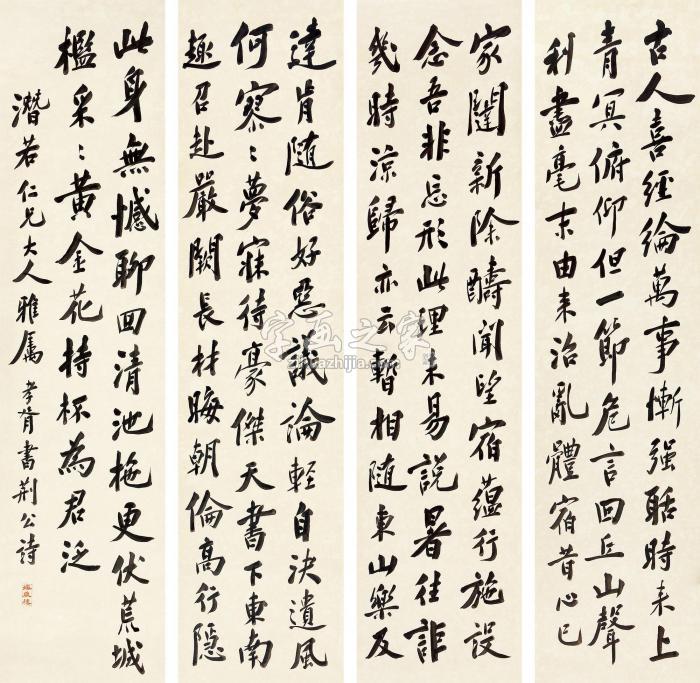 古人喜經綸萬事慚强聒時來上
青冥俯仰但一節危言回丘山聲
利盡毫末由來治亂體宿昔心已
家闥新除疇聞望宿蘊行施設
念吾非忘形此理未易說暑往詎
幾時涼歸亦云暫相随東山樂及
達肯随俗好惡議論輕自決遺風
何寥〻夢寐待豪傑天書下東南
趣召赴嚴闕長材晦朝倫高行隱
此身無憾聊回清池柂更伏荒城
檻采〻黃金花持杯為君泛
濳若仁兄大人雅屬 孝胥書荆公詩
字画之家
zihuazhijia.com